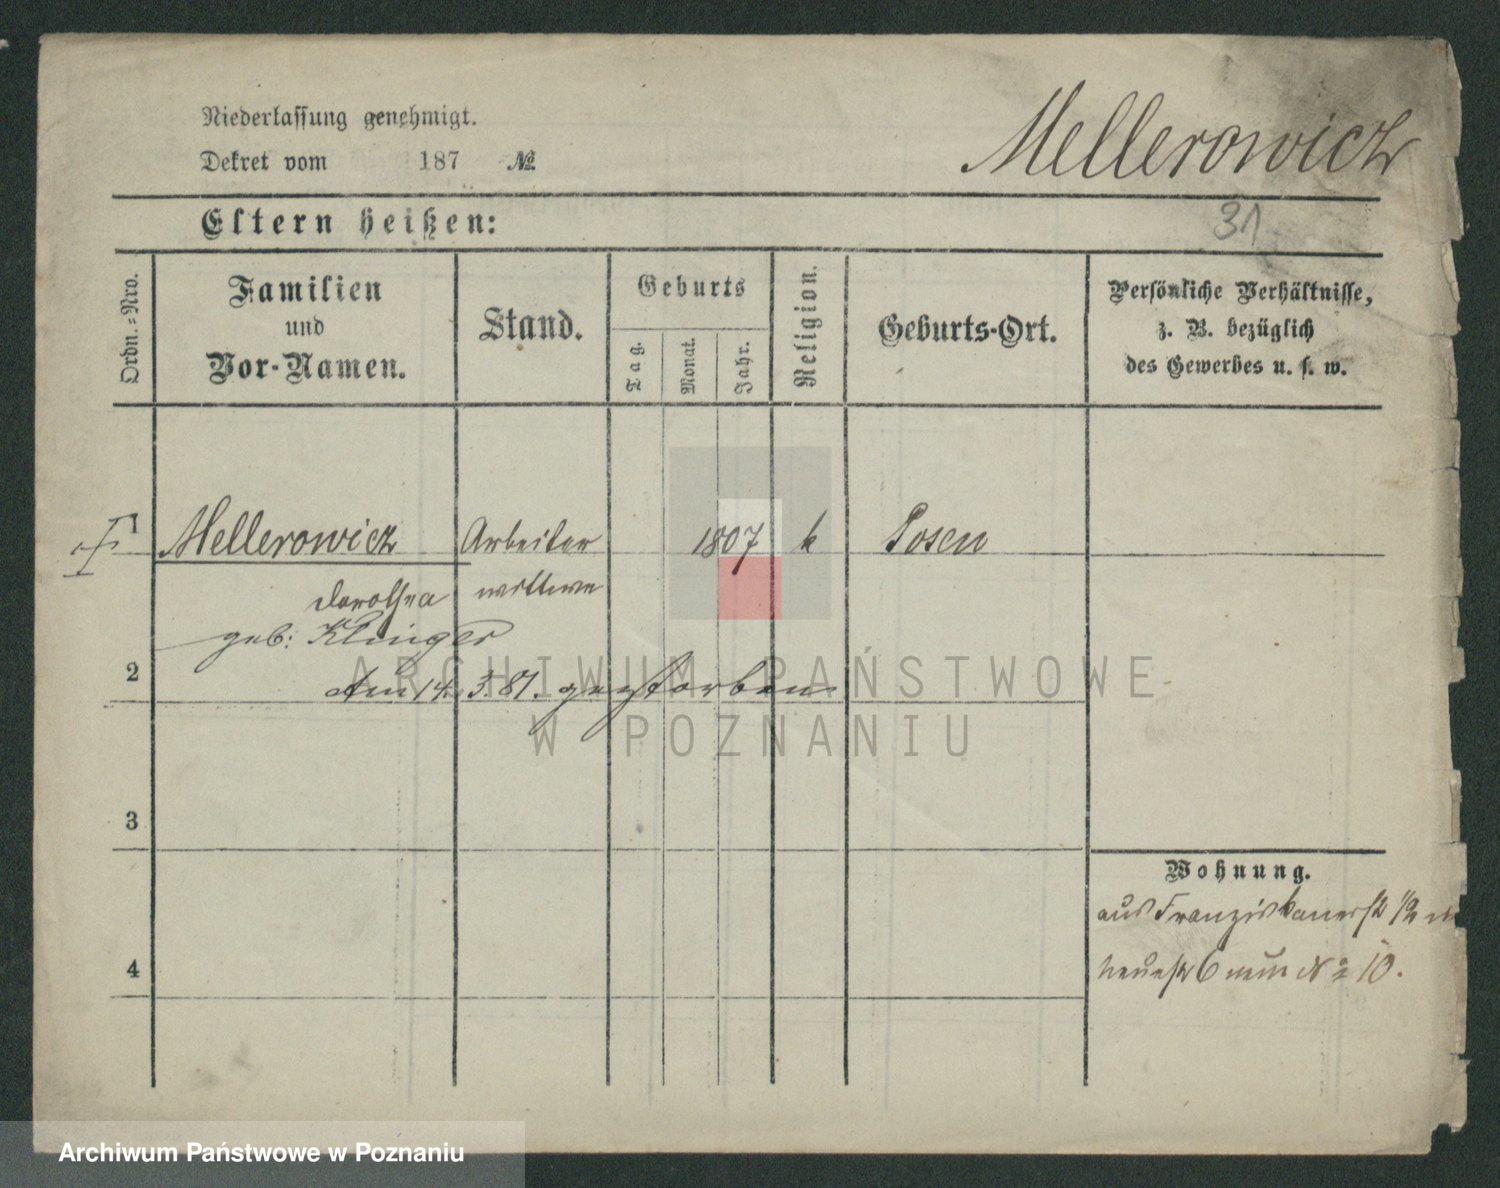 Niederlassung genehmigt.
Dekret vom 187 №
Mellerowicz
31
Eltern heißen:
Ordn.=Nro.
Familien
und
Vor-Namen.
Stand.
Geburts
Tag.
Monat.
Jahr.
Religion.
Geburts-Ort.
Persönliche Verhältnisse,
z. B. bezüglich
des Gewerbes u. s. w.
1 Mellerowicz Arbeiter 1807 k Posen
Dorothea wittwe
geb: Klinger
2 Am 14. 3. 81. gestorben
3
4
Wohnung.
aus Franziskanerstr 1/2
neuestr 6 № 10.
ARCHIWUM PAŃSTWOWE
W POZNANIU
Archiwum Państwowe w Poznaniu